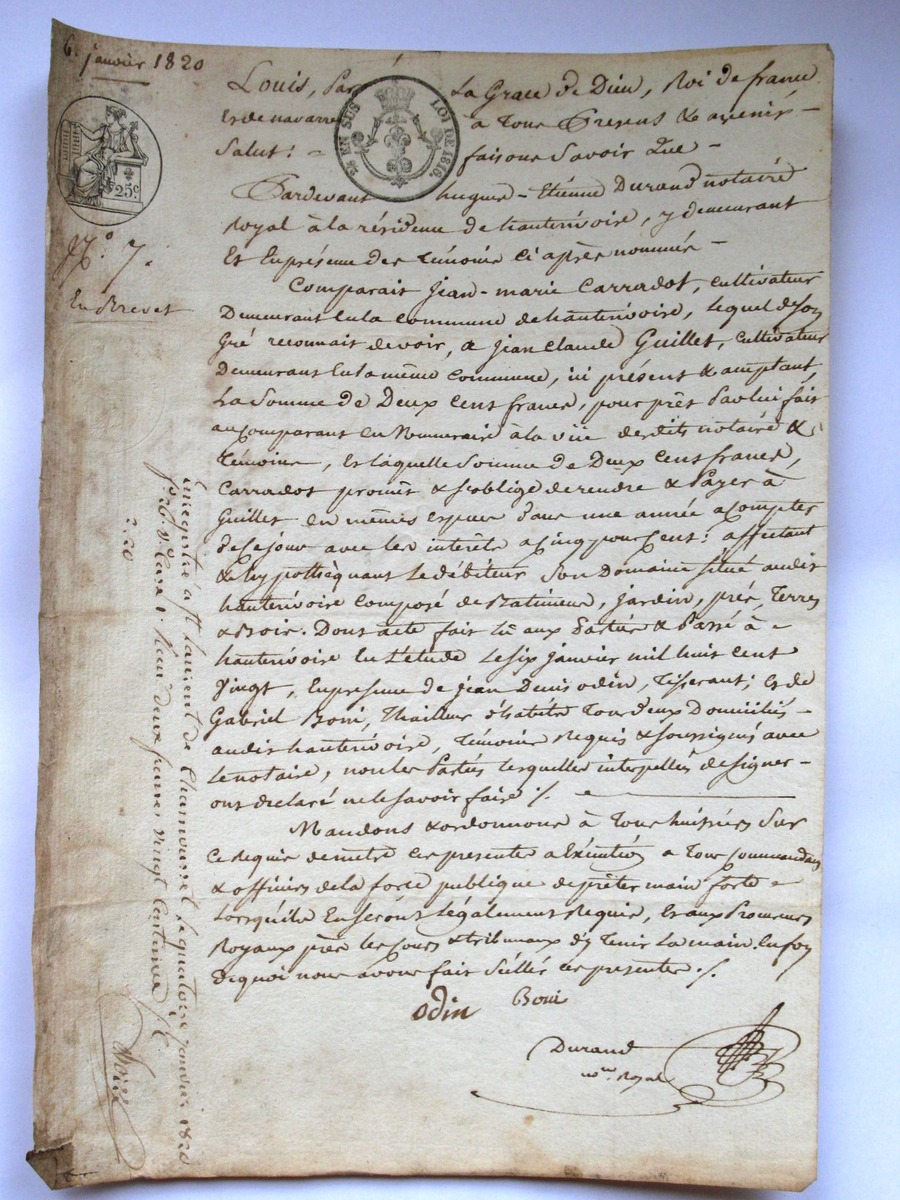 6. janvier 1820
Louis, Par La Grace de Dieu, Roi de france
Et de navarre à Tous Presens & avenir –
Salut! – faisons Savoir Que –
EN SUS LOI DE 1816.
25 c.
Pardevant hugue-Etiénne Durand notaire
Royal à la résidence de hauterivoire, y demeurant
Et En présence des témoins ci après nommés –
N.o 7.
En Brevet
Comparait Jean-marie Carradot, cultivateur
Demeurant En la commune de hauterivoire, lequel de son
Gré reconnait devoir, a Jean Claude Guillet, cultivateur
Demeurant En la même commune, ici présent & acceptant,
La Somme de Deux Cent francs, pour prêt Par lui fait
au Comparant En Numeraire à la vüe desdits notaire &
témoins, Et laquelle Somme de Deux Cent francs,
Carradot promet & s'oblige de rendre & Payer à
Guillet en mêmes especes dans une année a Compter
de Ce jour avec les intérêts a Cinq pour Cent: affectant
& hypothéquant le débiteur Son Domaine situé audit
hauterivoire Composé de Batimens, Jardin, prés, Terres
& Bois. Dont acte fait lû aux Parties & Passé à –
hauterivoire En l'étude le six janvier mil huit cent
vingt, En presence de Jean Denis odin, Tisserant; Et de
Gabriel Boni, Thailleur d'habits Tous deux Domiciliés –
audit hauterivoire, témoins Requis & soussignés avec
le notaire, non les Parties lesquelles interpellés de signer –
ont declaré ne le savoir faire ./.
Mandons & ordonnons à Tous huissiers Sur
Ce Requis de mettre Ces presentes a Exécution a Tous Commandans
& officiers de la force publique de prêter main forte –
Lorsqu'ils En seront Légalement Requis, Et aux Procureurs
Royaux près les Cours & tribunaux d'y Tenir la main. En foy
De quoi nous avons fait Scéller Ces presentes ./.
odin Boni
Durand
Royal
Enregistré à St Laurent de Chamousset le quatorze janvier 1820
Case 1. Reçu deux francs vingt Centimes
2.20